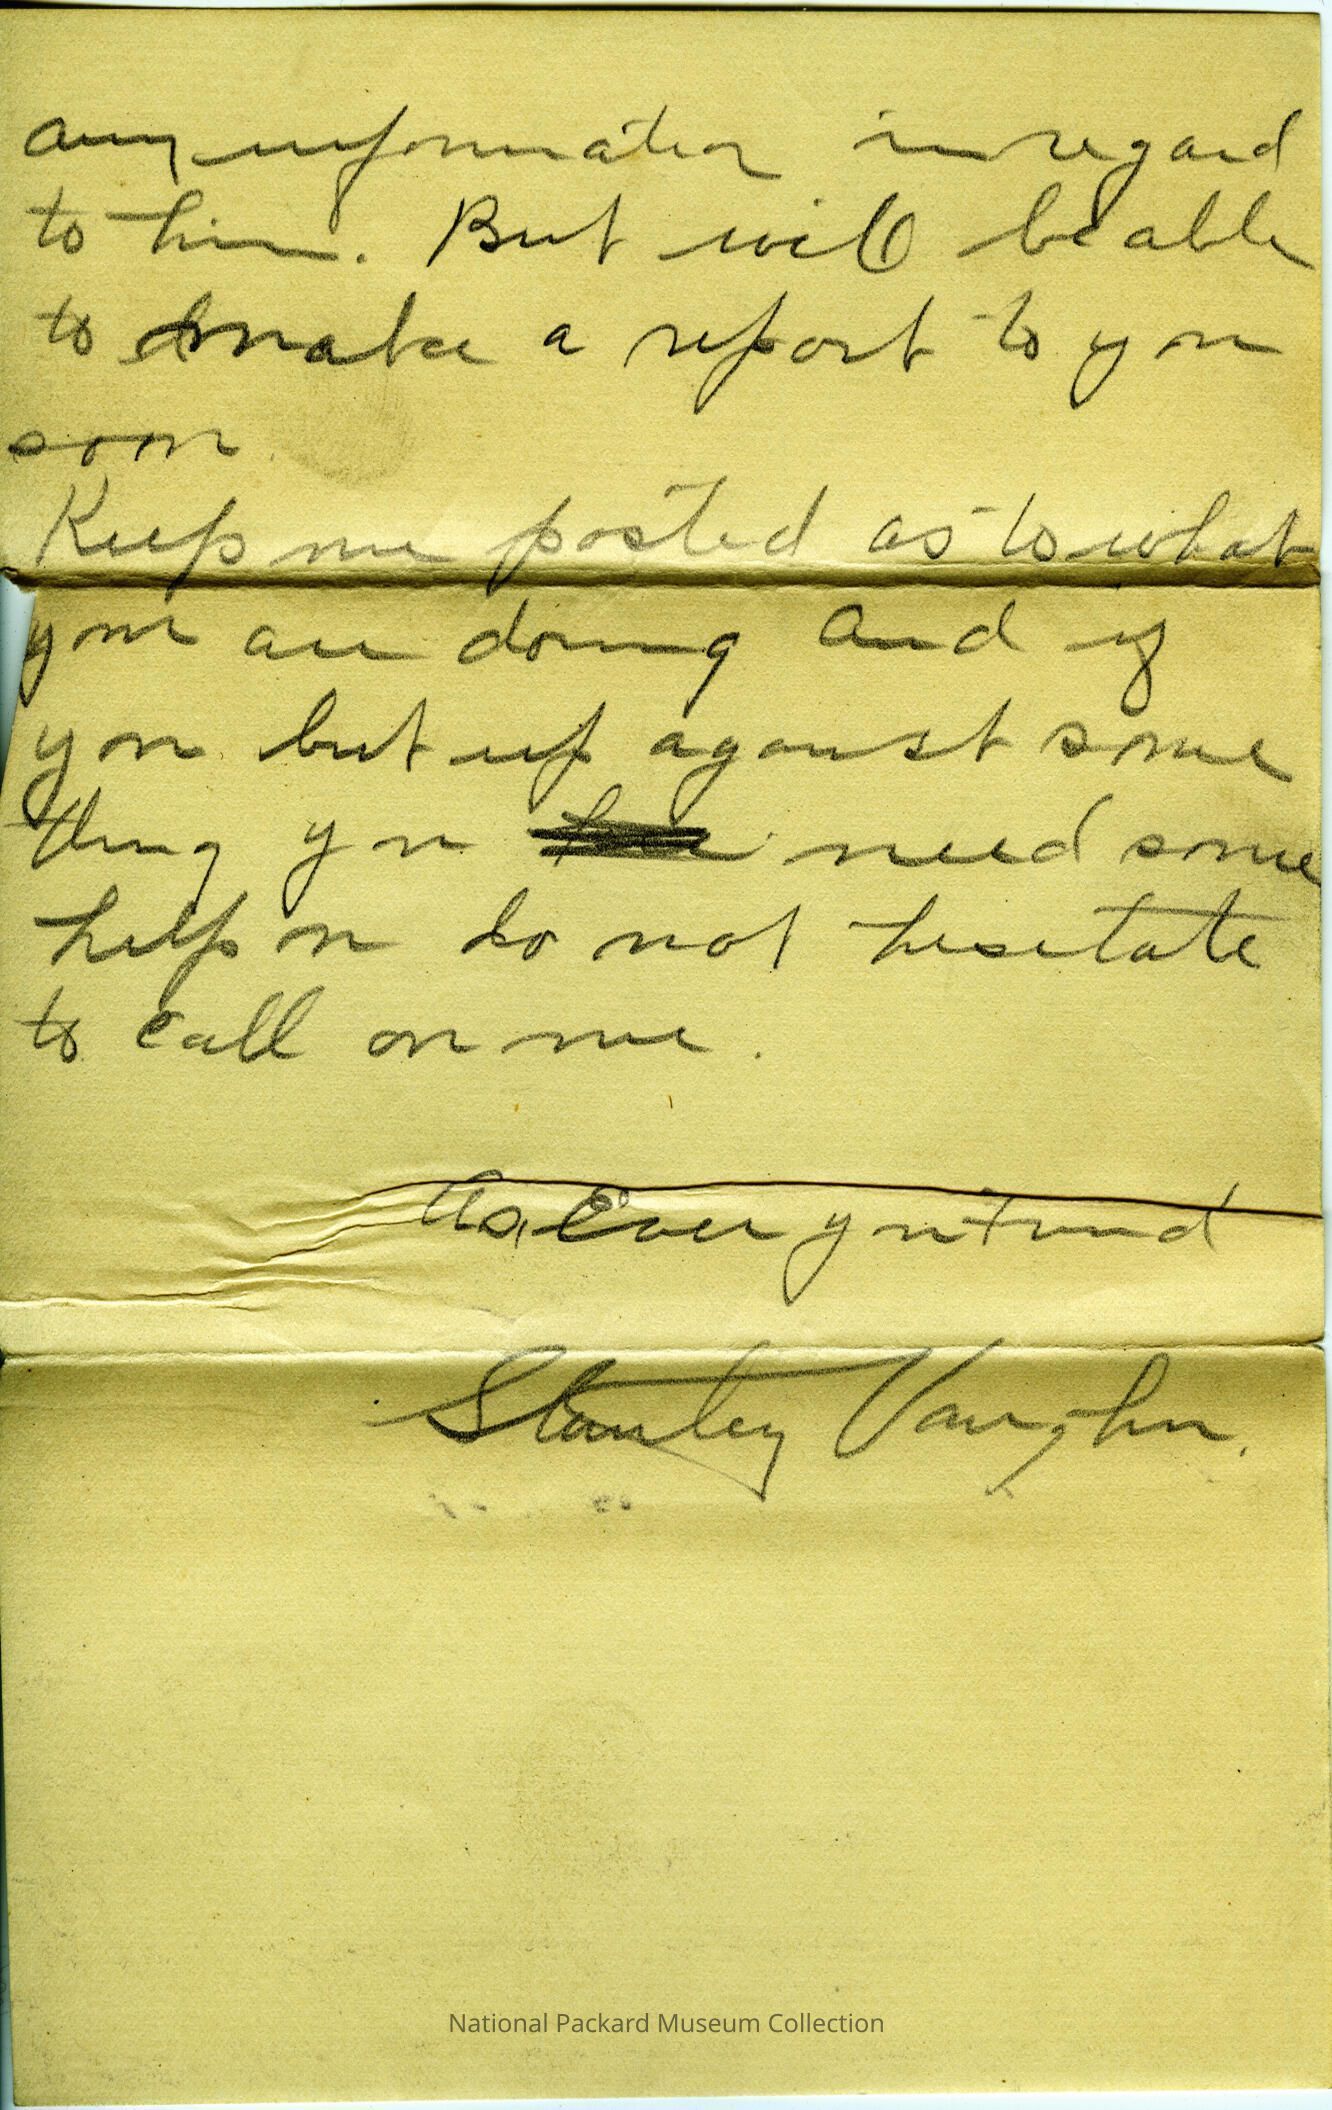 any information in regard
to him. But will be able
to make a report to you
soon.
Keep me posted as to what
you are doing and if
you but up against some
thing you need some
help on do not hesitate
to call on me.
As Ever yr friend
Stanley Vaughn.
National Packard Museum Collection